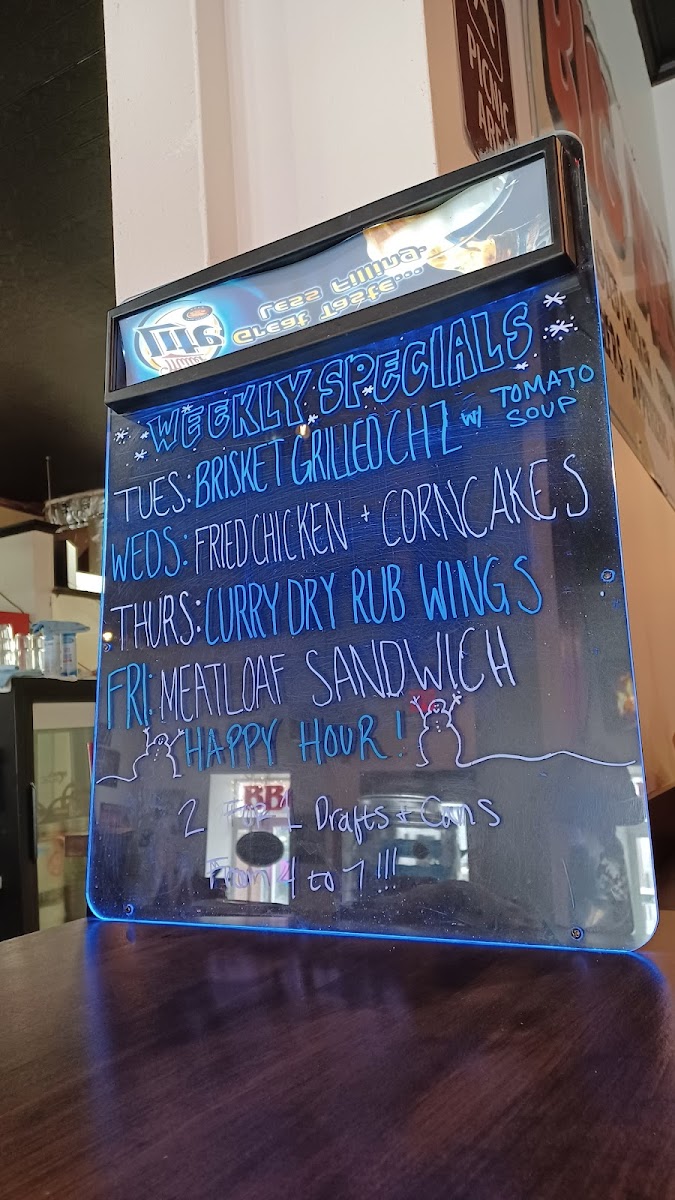 PICNIC
AREA
Great Taste...
Less Filling.
Lite
WEEKLY SPECIALS
TUES: BRISKET GRILLED CHZ W/ TOMATO SOUP
WEDS: FRIED CHICKEN + CORNCAKES
THURS: CURRY DRY RUB WINGS
FRI: MEATLOAF SANDWICH
HAPPY HOUR!
2 For 1 Drafts + Cans
From 4 to 7!!!